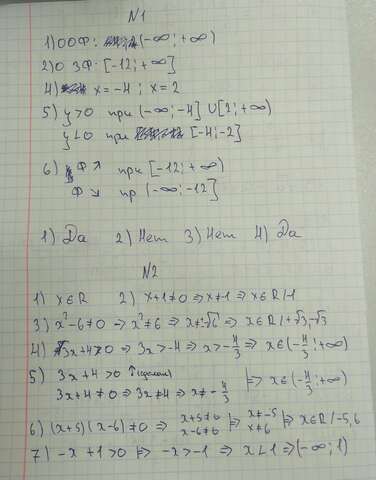 N1
1) ООФ: (-∞; +∞)
2) О ЗФ: [-12; +∞]
4) x = -4 ; x = 2
5) y>0 при (-∞; -4] U[2; +∞)
y<0 при [-4; -2]
6) Ф ↗ при [-12; +∞)
Ф ↘ пр (-∞; -12]
1) Да 2) Нет 3) Нет 4) Да
N2
1) x∈R 2) x+1≠0 ⇒ x≠-1 ⇒ x∈R/-1
3) x²-6≠0 ⇒ x²≠6 ⇒ x≠-√6 ⇒ x∈R/+√3,-√3
4) 3x+4>0 ⇒ 3x>-4 ⇒ x>-4/3 ⇒ x∈(-4/3; +∞)
5) 3x+4>0 ↑ ⇒ x∈(-4/3; +∞)
3x+4≠0 ⇒ 3x≠4 ⇒ x≠-4/3
6) (x+5)(x-6)≠0 ⇒ x+5≠0 ⇒ x≠-5 ⇒ x∈R/-5,6
x-6≠0 x≠6
7) -x+1>0 ⇒ -x>-1 ⇒ x<1 ⇒ (-∞; 1)